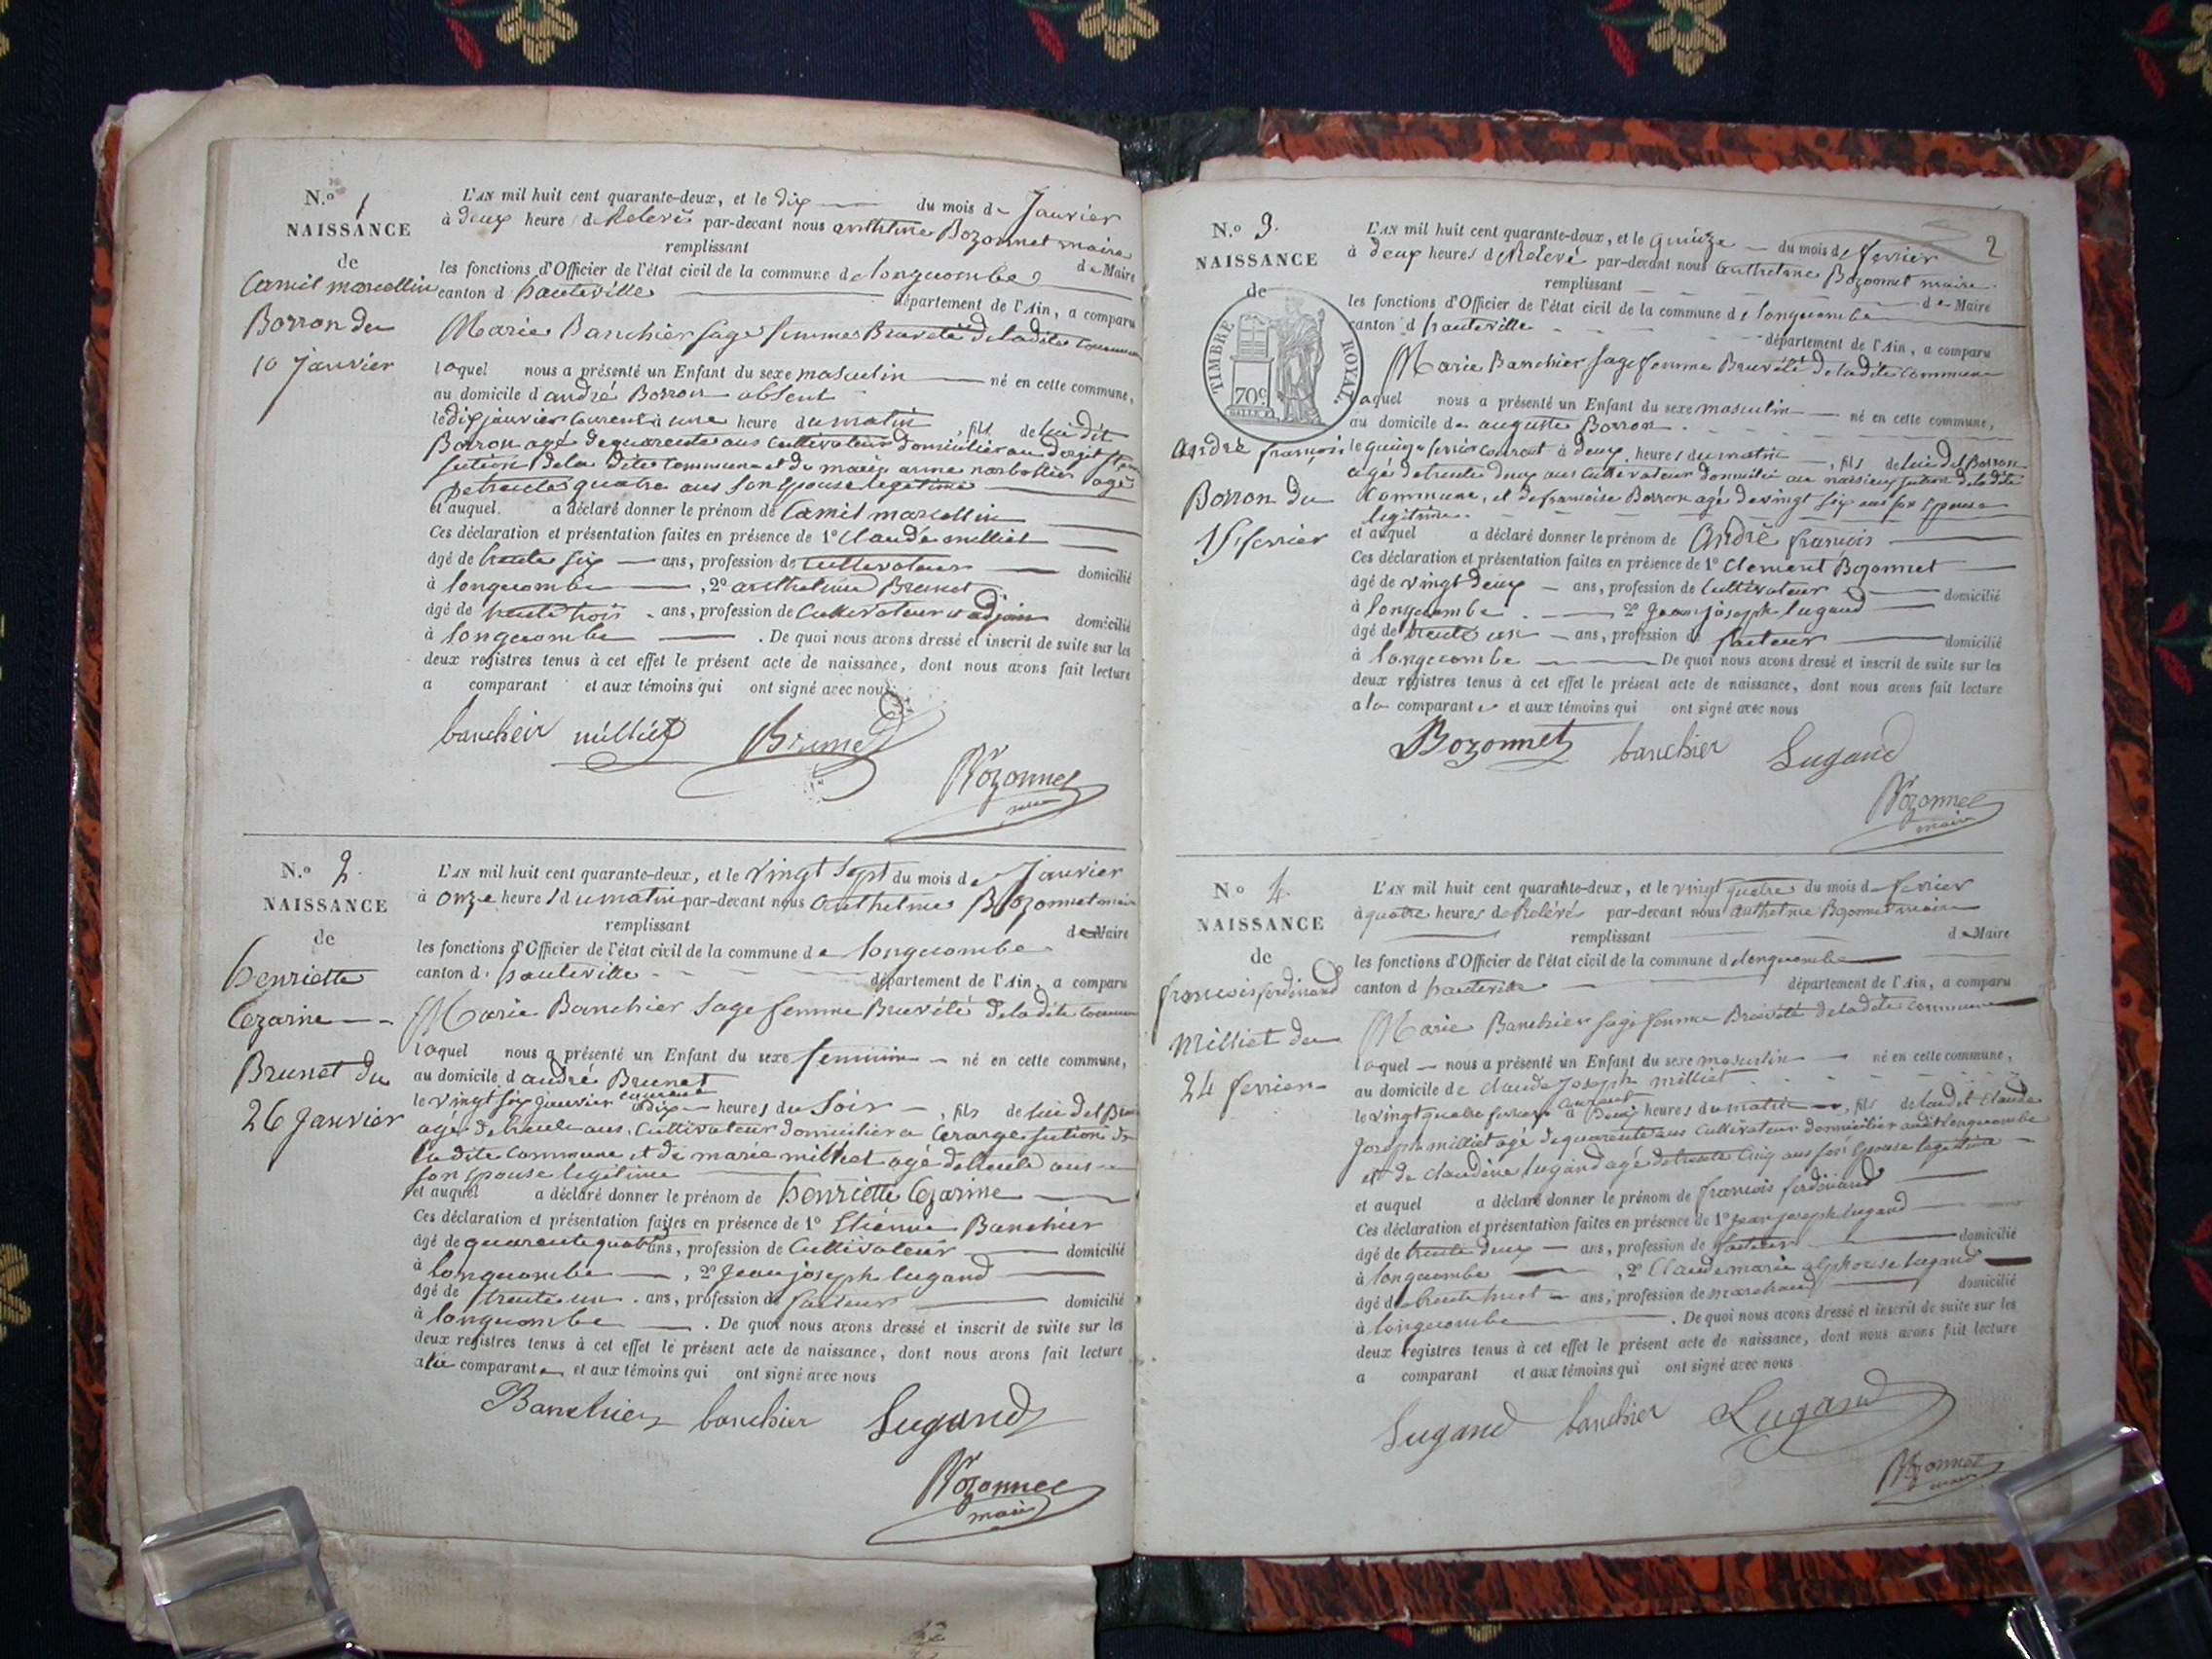 N.º 1
NAISSANCE
de
Camil marcellin
Borron du
10 Janvier
L'AN mil huit cent quarante-deux, et le dix du mois de Janvier
à deux heure de Relevé par-devant nous anthelme Bozonnet maire
remplissant
les fonctions d'Officier de l'état civil de la commune de longecombe de Maire
canton d hauteville département de l'Ain, a comparu
Marie Banchier sage femme Brevété de ladite commune
laquel nous a présenté un Enfant du sexe masculin né en cette commune,
au domicile d andré Borron absent
le dix janvier courent à une heure du matin, fils de lui dit
Borron agé de quarente ans cultivateur domicilier au
section de la dite commune et de marie anne agé
de trente quatre ans son Epouse legitime
et auquel a déclaré donner le prénom de Camil marcellin
Ces déclaration et présentation faites en présence de 1º Claude milliet
âgé de trente six ans, profession de cultivateur domicilié
à longecombe, 2º anthelme Brunet
âgé de trente trois ans, profession de Cultivateur et adjoin domicilié
à longecombe. De quoi nous avons dressé et inscrit de suite sur les
deux registres tenus à cet effet le présent acte de naissance, dont nous avons fait lecture
a comparant et aux témoins qui ont signé avec nous
banchier milliet Brunet
Bozonnet
maire
N.º 2.
NAISSANCE
de
henriette
Cezarine
Brunet du
26 Janvier
L'AN mil huit cent quarante-deux, et le vingt sept du mois de Janvier
à onze heures du matin par-devant nous Anthelme Bozonnet maire
remplissant de Maire
les fonctions d'Officier de l'état civil de la commune de longecombe
canton d hauteville département de l'Ain, a comparu
Marie Banchier Sage femme Brevété de ladite commune
laquel nous a présenté un Enfant du sexe feminin né en cette commune,
au domicile d andré Brunet
le vingt six janvier courent à dix heures du Soir, fils de lui dit Brunet
agé de trente ans Cultivateur domicilier a section de
la dite commune et de marie milliet agé de trente ans
son Epouse legitime
et auquel a déclaré donner le prénom de henriette Cezarine
Ces déclaration et présentation faites en présence de 1º Etienne Banchier
âgé de quarente quatre ans, profession de Cultivateur domicilié
à longecombe, 2º Jean joseph lugand
âgé de trente un ans, profession de facteur domicilié
à longecombe. De quoi nous avons dressé et inscrit de suite sur les
deux registres tenus à cet effet le présent acte de naissance, dont nous avons fait lecture
a la comparante et aux témoins qui ont signé avec nous
Banchier banchier Lugand
Bozonnet
maire
2
N.º 3.
NAISSANCE
de
TIMBRE ROYAL.
70c
andré françois
Borron du
15 fevrier
L'AN mil huit cent quarante-deux, et le quinze du mois de fevrier
à deux heures de Relevé par-devant nous anthelme Bozonnet maire
remplissant
les fonctions d'Officier de l'état civil de la commune de longecombe de Maire
canton d hauteville département de l'Ain, a comparu
Marie Banchier Sage femme Brevété de ladite commune
laquel nous a présenté un Enfant du sexe masculin né en cette commune,
au domicile de auguste Borron
le quinze fevrier courant à deux heures du matin, fils de lui dit Borron
agé de trente deux ans Cultivateur domicilié au section de la dite
Commune, et de francoise Borron agé de vingt six ans son Epouse
legitime
et auquel a déclaré donner le prénom de André francois
Ces déclaration et présentation faites en présence de 1º Clement Bozonnet
âgé de vingt deux ans, profession de Cultivateur domicilié
à longecombe 2º Jean joseph lugand
âgé de trente un ans, profession de facteur domicilié
à longecombe De quoi nous avons dressé et inscrit de suite sur les
deux registres tenus à cet effet le présent acte de naissance, dont nous avons fait lecture
a la comparante et aux témoins qui ont signé avec nous
Bozonnet banchier Lugand
Bozonnet
maire
Nº 4.
NAISSANCE
de
francois ferdinand
Milliet du
24 fevrier
L'AN mil huit cent quarante-deux, et le vingt quatre du mois de fevrier
à quatre heures de Relévé par-devant nous anthelme Bozonnet maire
remplissant de Maire
les fonctions d'Officier de l'état civil de la commune de longecombe
canton d hauteville département de l'Ain, a comparu
Marie Banchier sage femme Brévété de ladite commune
laquel nous a présenté un Enfant du sexe masculin né en cette commune,
au domicile de claude Joseph milliet
le vingt quatre fevrier courant à deux heures du matin, fils de lui dit Claude
Joseph milliet agé de quarente ans Cultivateur domicilier audit longecombe
et de claudine lugand agé de trente cinq ans son Epouse legitime
et auquel a déclaré donner le prénom de francois ferdinand
Ces déclaration et présentation faites en présence de 1º jean joseph lugand
âgé de trente deux ans, profession de facteur domicilié
à longecombe, 2º Claude marie alphonse lugand
âgé de trente huit ans, profession de marchand domicilié
à longecombe. De quoi nous avons dressé et inscrit de suite sur les
deux registres tenus à cet effet le présent acte de naissance, dont nous avons fait lecture
a comparant et aux témoins qui ont signé avec nous
Lugand banchier Lugand
Bozonnet
maire